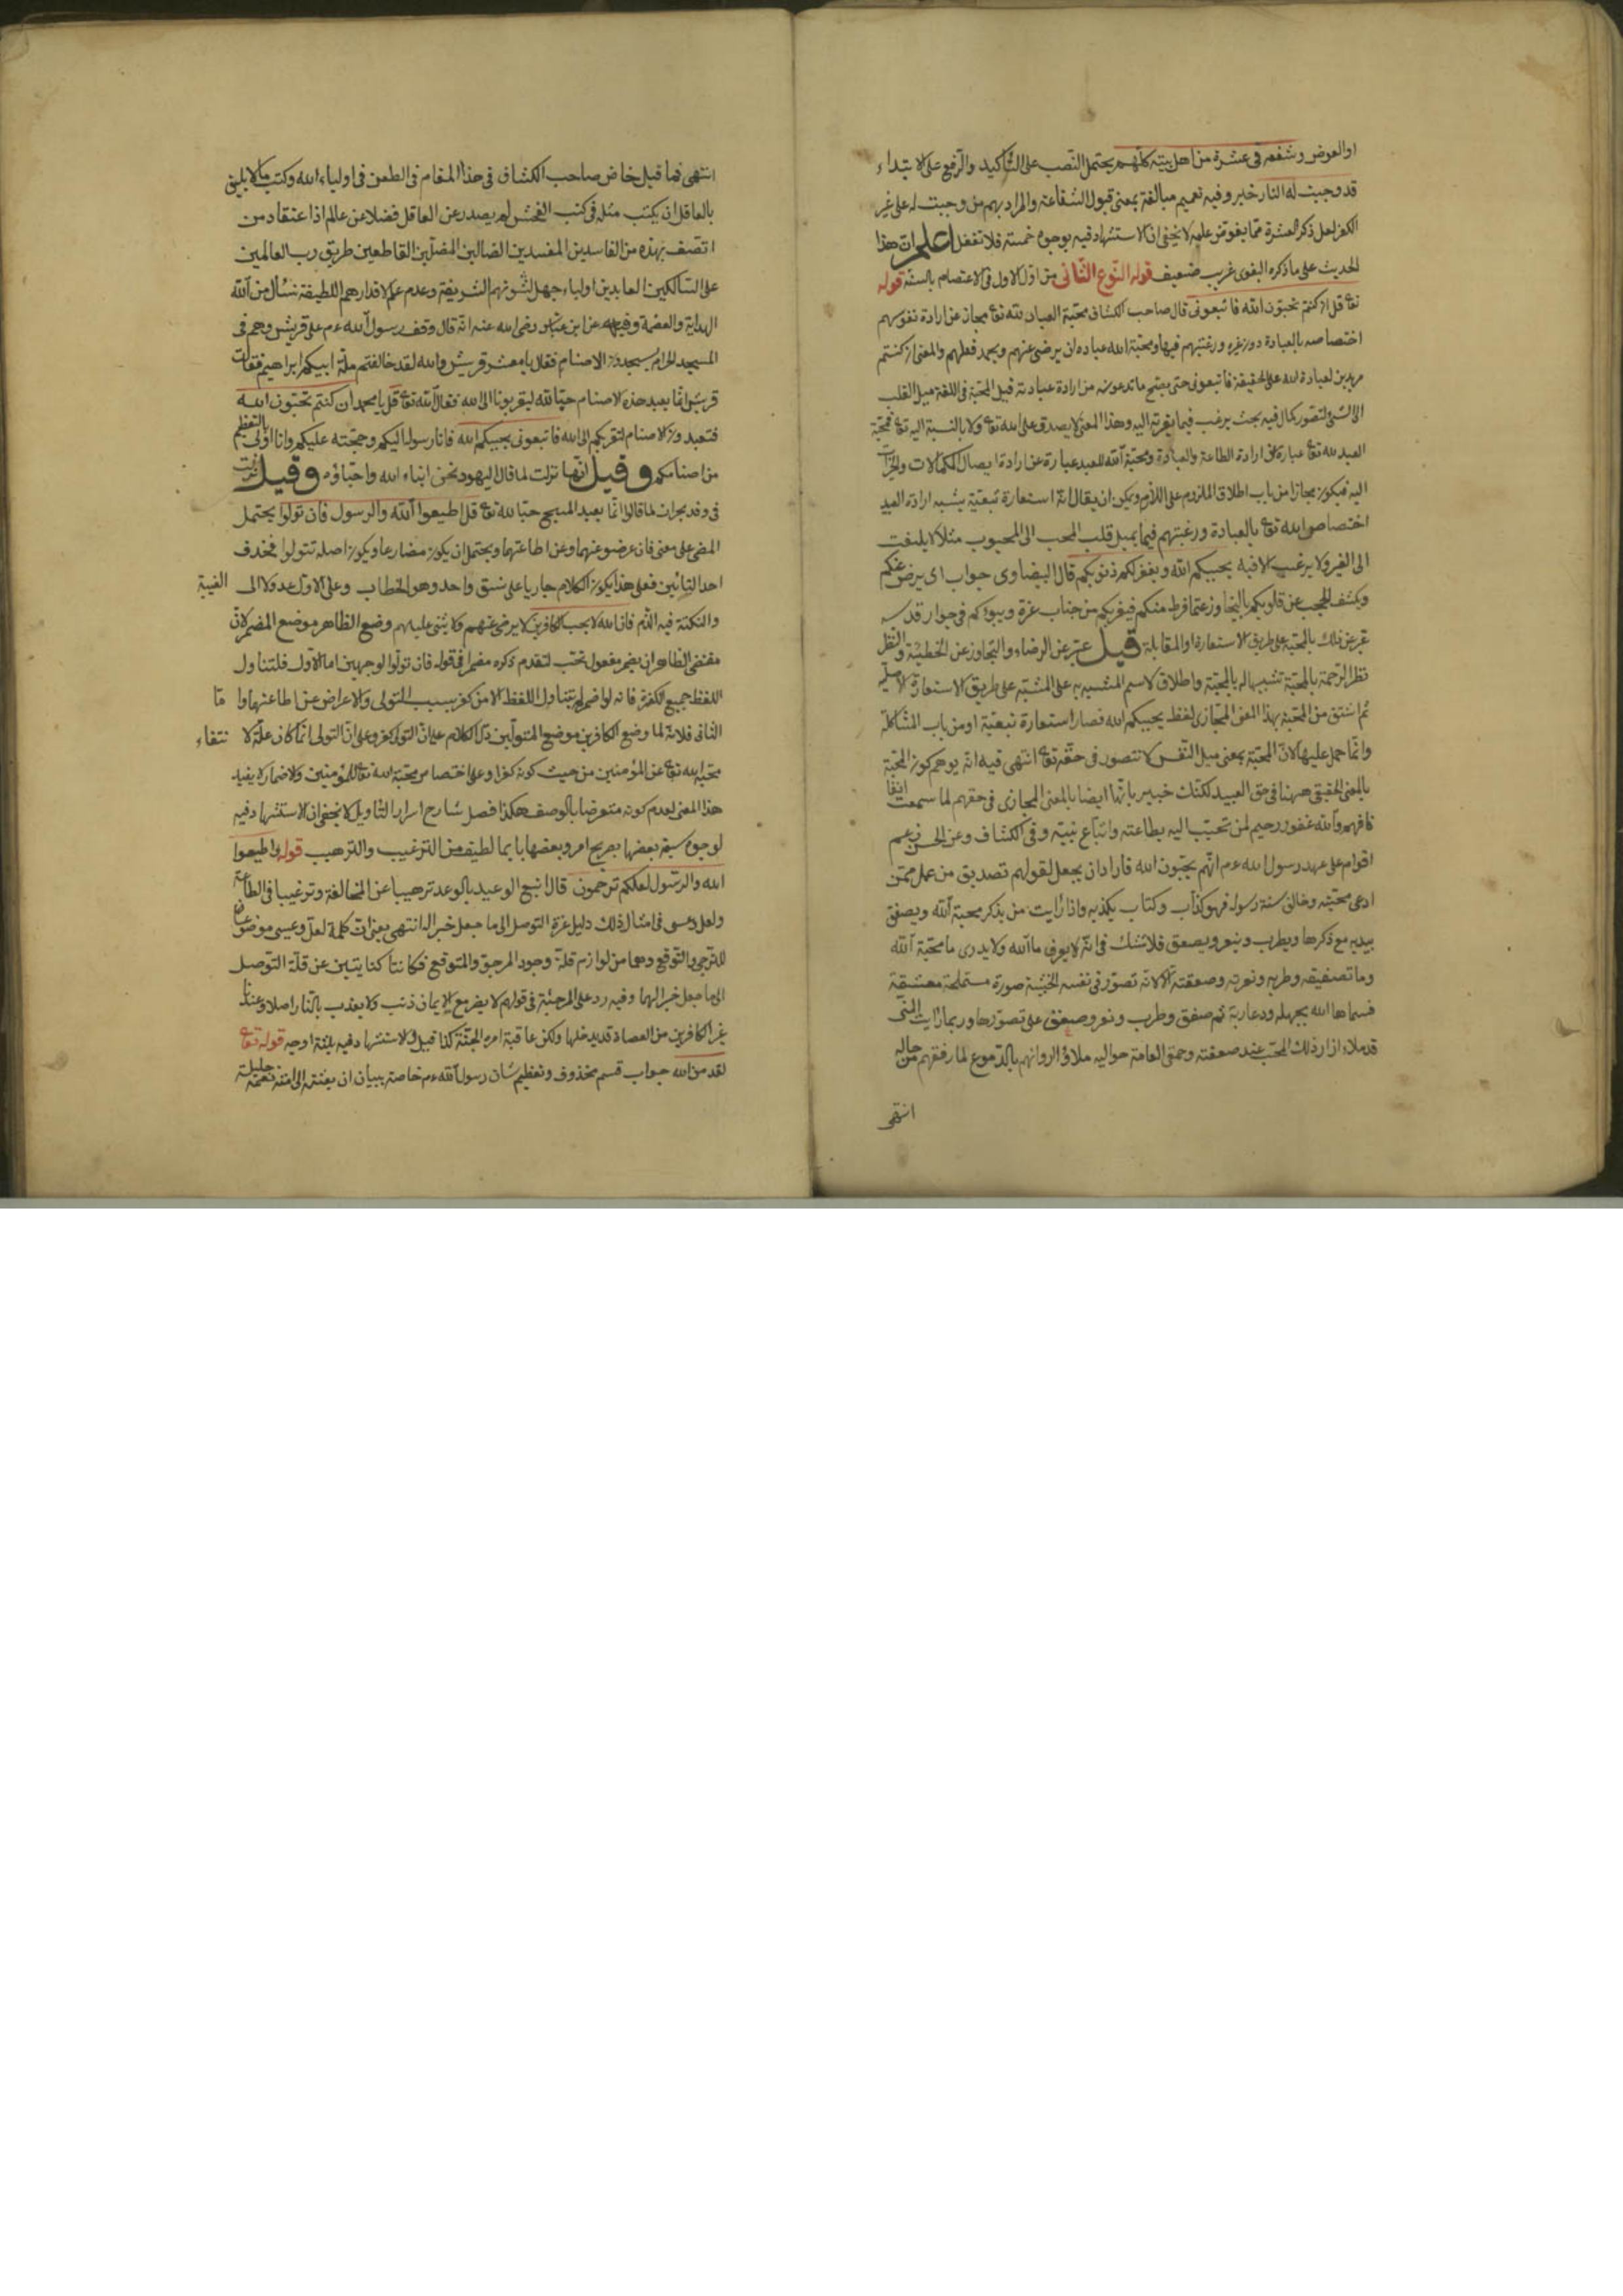 او العوض وشفعه في عشرة من اهل بيته كلهم يحتمل النصب على التاكيد والرفع على الابتداء
قد وجبت له النار خبر وفيه تعميم مبالغة بمعنى قبول الشفاعة والمراد بهم من وجبت له على غير
الكفر لعل ذكر العشرة مما يفوض علمه لا يخفى ان الاستشهاد فيه بوجوه خمسة فلا تغفل اعلم ان هذا
الحديث على ما ذكره البغوى غريب ضعيف قوله النوع الثانى من الاول فى الاعتصام بالسنة قوله
تع قل ان كنتم تحبون الله فاتبعونى قال صاحب الكشاف محبة العباد لله تع مجاز عن ارادة نفوسهم
اختصاصه بالعبادة دون غيره ورغبتهم فيها ومحبة الله عباده ان يرضى عنهم ويحمد فعلهم والمعنى ان كنتم
مريدين لعبادة الله على الحقيقة فاتبعونى حتى يصح ما تدعونه من ارادة عبادته قيل المحبة فى اللغة ميل القلب
الى الشى لتصور كمال فيه بحيث يرغب فيما يقربه اليه وهذا المعنى لا يصدق على الله تع ولا بالنسبة اليه تع فمحبة
العبد لله تع عبارة عن ارادة الطاعة والعبادة ومحبة الله للعبد عبارة عن ارادة ايصال الكمالات والخيرات
اليه فيكون مجازا من باب اطلاق الملزوم على اللازم ويمكن ان يقال انه استعارة تبعية يشبه ارادة العبد
اختصاص الله تع بالعبادة ورغبتهم فيها بميل قلب المحب الى المحبوب مثلا لا يلتفت
الى الغير ولا يرغب الا فيه يحببكم الله ويغفر لكم ذنوبكم قال البيضاوى جواب اى يرض عنكم
ويكشف الحجب عن قلوبكم بالتجاوز عما فرط منكم فيقربكم من جناب عزه ويبوئكم فى جوار قدسه
عبر عن ذلك بالمحبة على طريق الاستعارة او المقابلة قيل عبر عن الرضاء والتجاوز عن الخطيئة
الرحمة بالمحبة تشبيها له بالمحبة واطلاق الاسم المشبه به على المشبه على طريق الاستعارة الاصلية
ثم اشتق من المحبة بهذا المعنى المجازى لفظ يحببكم الله فصار استعارة تبعية او من باب المشاكلة
وانما حمل عليها لان المحبة بمعنى ميل النفس لا تتصور فى حقه تع انتهى فيه انه يوهم كون المحبة
بالمعنى الحقيقى ههنا فى حق العبيد لكنك خبير بانها ايضا بالمعنى المجازى فى حقهم لما سمعت انفا
فافهم والله غفور رحيم لمن تحبب اليه بطاعته واتباع نبيه وفى الكشاف وعن الحسن زعم
اقوام على عهد رسول الله عم انهم يحبون الله فاراد ان يجعل لقولهم تصديق من عمل فمن
ادعى محبته وخالف سنة رسوله فهو كذاب وكتاب يكذبه واذا رايت من يذكر محبة الله ويصفق
بيديه مع ذكرها ويطرب وينعر ويصعق فلا تشك فى انه لا يعرف ما الله ولا يدرى ما محبة الله
وما تصفيقه وطربه ونعرته وصعقته الا لانه تصور فى نفسه الخبيثة صورة مستملحة معشقة
فسماها الله بجهله ودعارته ثم صفق وطرب ونعر وصعق على تصورها وربما رايت المنى
قد ملاء ازار ذلك المحب عند صعقته وحمق العامة حواليه ملاؤا اردانهم بالدموع لما رققهم من حاله
انتهى
انتهى فما قيل خاض صاحب الكشاف فى هذا المقام فى الطعن فى اولياء الله وكتب ما لا يليق
بالعاقل ان يكتب مثله فى كتب الفحش لم يصدر عن العاقل فضلا عن عالم اذا عتقاد من
اتصف بهذه من الفاسدين المفسدين الضالين المضلين القاطعين طريق رب العالمين
على السالكين العابدين اولياء جهل لشونهم الشريفة وعدم علم لاقدارهم اللطيفة نسأل من الله
الهداية والعصمة وفيه عن ابن عباس رضى الله عنه انه قال وقف رسول الله عم على قريش وهم فى
المسجد الحرام يسجدون الاصنام فقال يا معشر قريش والله لقد خالفتم ملة ابيكم ابراهيم فقالت
قريش انما نعبد هذه الاصنام حبا لله ليقربونا الى الله فقال الله تع قل يا محمد ان كنتم تحبون الله
فتعبدون الاصنام لتقربكم الى الله فاتبعونى يحببكم الله فانا رسوله اليكم وحجته عليكم وانا اولى بالتعظيم
من اصنامكم وقيل انها نزلت لما قال اليهود نحن ابناء الله واحباؤه وقيل نزلت
فى وفد نجران لما قالوا انما نعبد المسيح حبا لله تع قل اطيعوا الله والرسول فان تولوا يحتمل
المضى على معنى فان عرضوا عنهما وعن اطاعتهما ويحتمل ان يكون مضارعا ويكون اصله تتولوا فحذف
احد التائين فعلى هذا يكون الكلام جاريا على نسق واحد وهو الخطاب وعلى الاول عدولا الى الغيبة
والنكتة فيه الذم فان الله لا يحب الكافرين لا يرضى عنهم ولا يثنى عليهم وضع الظاهر موضع المضمر لان
مقتضى الظاهر ان يضمر مفعول تحب لتقدم ذكره مضمرا فى قوله فان تولوا لوجهين اما الاول فلتناول
اللفظ جميع الكفرة فانه لو اضمر لم يتناول اللفظ الا من كفر بسبب التولى والاعراض عن اطاعتهما واما
الثانى فلانه لما وضع الكافرين موضع المتولين دل الكلام على ان التولى كفر وعلى ان التولى انما كان علة لا نتفاء
محبة الله تع عن المؤمنين من حيث كونه كفرا وعلى اختصاص محبة الله تع للمؤمنين والاضمار لا يفيد
هذا المعنى لعدم كونه متعرضا بالوصف هكذا فصل شارح اسرار التاويل لا يخفى ان الاستشهاد فيه
لوجوه ستة بعضها بصريح امر وبعضها بايما لطيف من الترغيب والترهيب قوله واطيعوا
الله والرسول لعلكم ترحمون قال اتبع الوعيد بالوعد ترهيبا عن المخالفة وترغيبا فى الطاعة
ولعل وعسى فى امثال ذلك دليل عزة التوصل الى ما جعل خبر اله انتهى يعنى ان كلمة لعل وعسى موضوعتان
للترجى والتوقع وهما من لوازم قلة وجود المرجو والمتوقع فكانتا كنايتين عن قلة التوصل
الى ما جعل خبرا لهما وفيه رد على المرجئة فى قولهم لا يضر مع الايمان ذنب ولا يعذب بالنار اصلا وعندنا
غير الكافرين من العصاة قد يدخلها ولكن عاقبة امره الجنة كذا قيل والاستشهاد فيه بثلثة اوجه قوله تع
لقد من الله جواب قسم محذوف وتعظيم شان رسول الله عم خاصة ببيان ان بعثته الى امته نعمة جليلة